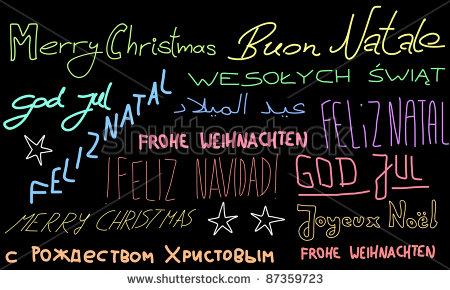 Merry Christmas Buon Natale
WESOŁYCH ŚWIĄT
God Jul FELIZ NATAL عيد الميلاد FELIZ NATAL
FROHE WEIHNACHTEN
¡FELIZ NAVIDAD! GOD JUL
MERRY CHRISTMAS Joyeux Noël
с Рождеством Христовым FROHE WEIHNACHTEN
www.shutterstock.com · 87359723